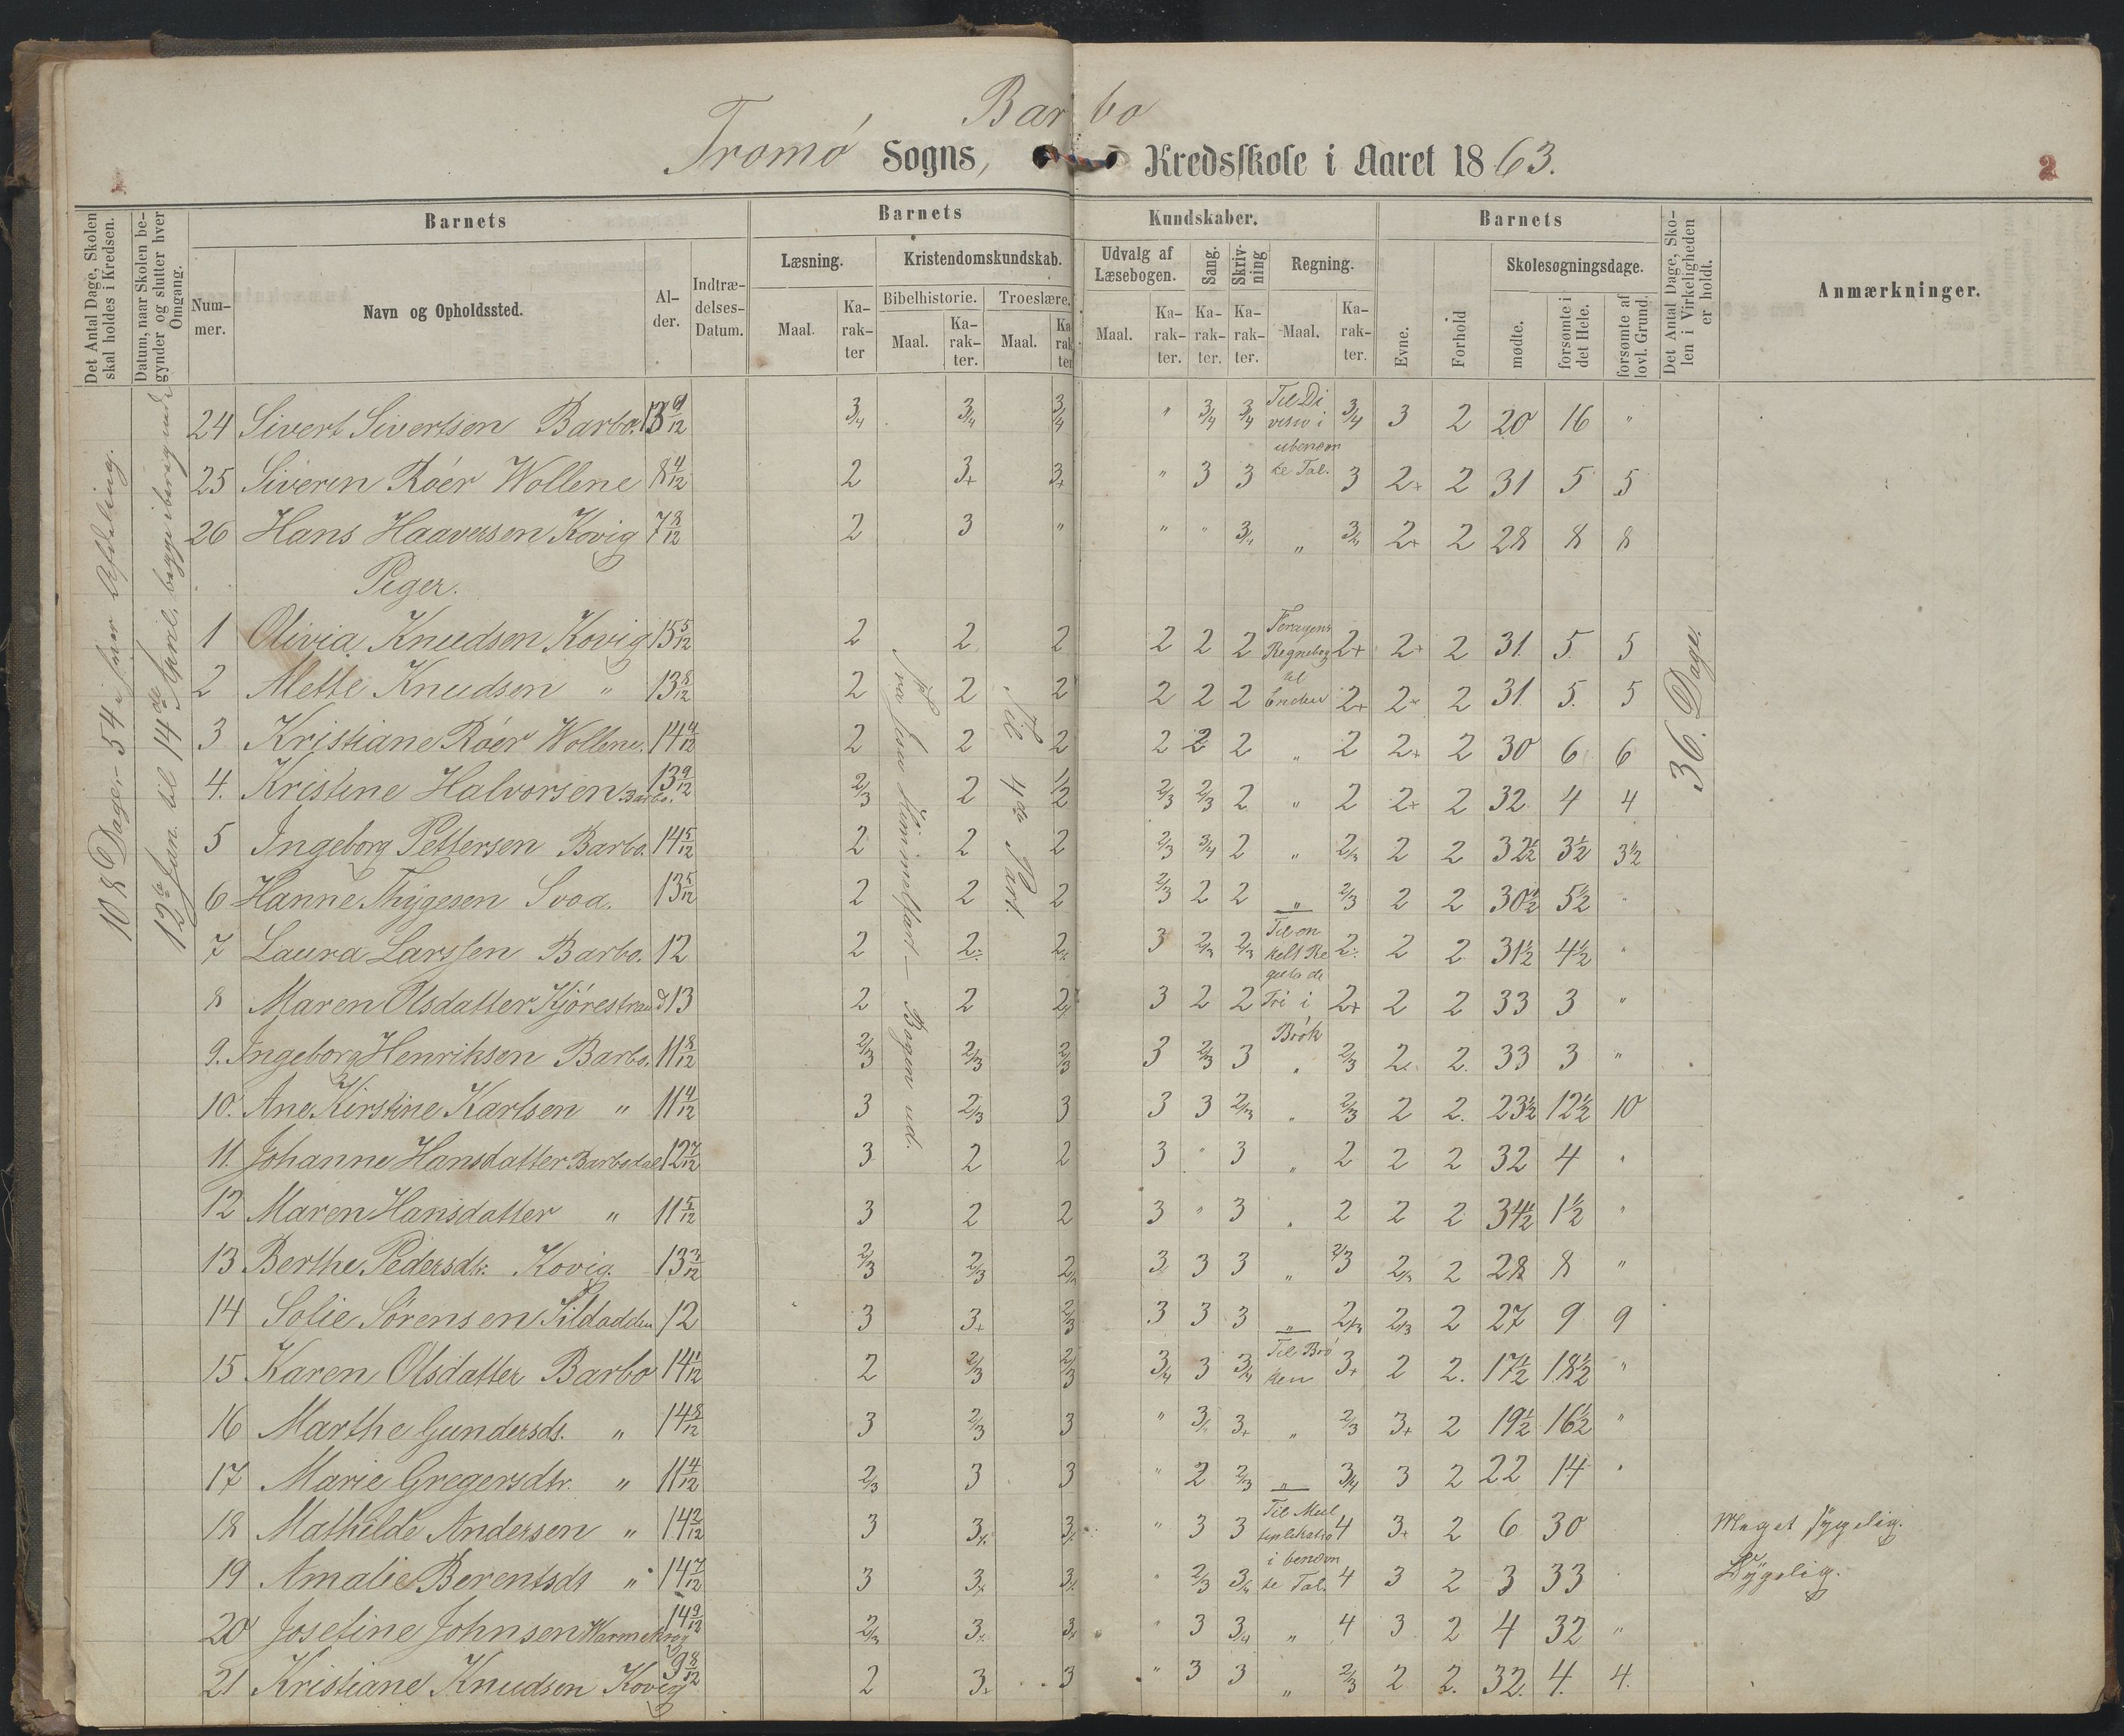 Barbo
Tromø Sogns, Kredsskole i Aaret 1863.
2
Det Antal Dage, Skolen skal holdes i Kredsen.
Datum, naar Skolen begynder og slutter hver Omgang.
Barnets
Nummer.
Navn og Opholdssted.
Alder.
Indtrædelses-Datum.
Barnets Kundskaber.
Læsning.
Maal.
Karakter
Kristendomskundskab.
Bibelhistorie.
Maal.
Karakter.
Troeslære.
Maal.
Karakter
Udvalg af Læsebogen.
Maal.
Karakter.
Sang.
Karakter.
Skrivning
Karakter.
Regning.
Maal.
Karakter.
Barnets
Evne.
Forhold
Skolesøgningsdage.
mødte.
forsømte i det Hele.
forsømte af lovl. Grund.
Det Antal Dage, Skolen i Virkeligheden er holdt.
Anmærkninger.
108 Dage 54 i hver Afdeling.
12te Jan. til 14de April, begge iberegnede
Fra Jesu Himmelfart – Bogen ud.
Til 4de Part.
36. Dage.
24 Sivert Sivertsen Barbo. 13 9/12 3/4 3/4 3/4 " 3/4 3/4 Til Division i ubenævnte Tal. 3/4 3 2 20 16 "
25 Siveren Róer Wollene 8 4/12 2 3+ 3+ " 3 3 3 2+ 2 31 5 5
26 Hans Haaversen Kovig 7 8/12 2 3 " " " 3/4 " 3/4 2+ 2 28 8 8
Piger.
1 Olivia Knudsen Kovig 15 5/12 2 2 2 2 2 2 Regnebog til Enden 2+ 2+ 2 31. 5. 5
2 Mette Knudsen " 13 8/12 2 2 2 2 2 2 2+ 2+ 2 31. 5. 5
3 Kristiane Róer Wollene. 14 9/12 2 2 2 2 2 2 " 2 2+ 2 30 6 6
4. Kristine Halvorsen Barbo. 13 9/12 2/3 2 1/2 2/3 2/3 2 " 2 2+ 2 32 4 4
5 Ingeborg Pettersen Barbo. 14 5/12 2 2 2 2/3 3/4 2 " 2/3 2 2 32 1/2 3 1/2 3 1/2
6 Hanne Thygesen Svoa. 13 5/12 2 2 2 2/3 2 2 " 2/3 2 2 30 1/2 5 1/2 "
7 Laura Larssen Barbo. 12 2 2 2 3 2/3 2/3 Til enkelt Regula de Tri i Brök 2 2 2 31 1/2 4 1/2 "
8 Maren Olsdatter Kjórestrand 13 2 2 2 3 2 2 2+ 2 2 33 3 "
9. Ingeborg Henriksen Barbo. 11 8/12 2/3 2/3 2/3 3 2/3 3 " 2/3 2. 2. 33 3 "
10. Ane Kirstine Karlsen " 11 4/12 3 2/3 3 3 3 2/3 " 2/3 2 2. 23 1/2 12 1/2 10
11. Johanne Hansdatter Barbodal 12 7/12 3 2 2 3 " 3 " 2 2 2 32 4 "
12 Maren Hansdatter " 11 5/12 3 2 2 3 " 3 " 2 2 2 34 1/2 1 1/2 "
13 Berthe Pedersdtr. Kovig. 13 3/12 2/3 2/3 2/3 3 3 3 " 2/3 2/3 2 28 8 "
14 Solie Sørensen Sildodden 12 3 3+ 2/3 3 3 3 " 2/3 2/3 2 27 9 9
15 Karen Olsdatter Barbo 14 1/12 2 2/3 2/3 3/4 3 3/4 Til Bröken 3+ 2 2. 17 1/2 18 1/2 "
16 Marthe Gundersdt. " 14 8/12 3 2/3 3 " 3 3+ " 2/3 3+ 2 19 1/2 16 1/2 "
17 Marie Gregersdtr. " 11 4/12 2/3 3 3 " 2 2/3 " 3/4 3 2 22 14 "
18 Mathilde Andersen " 14 2/12 3 3 3 " 3 3 Til Multiplikation i benævnte Tal. 4 3+ 2 6 30 Meget sygelig.
19 Amalie Berentsdt " 14 7/12 3 3 3 " 2/3 3/4 4 3 2 3 33 Sygelig.
20 Josefine Johnsen Warmekrog 14 9/12 2/3 3 3 " 3 3/4 " 4 3 2 4 32 "
21 Kristiane Knudsen Kovig 9 8/12 2 3+ 3 " 3 3 " 2/3 2 2. 32. 4. 4.